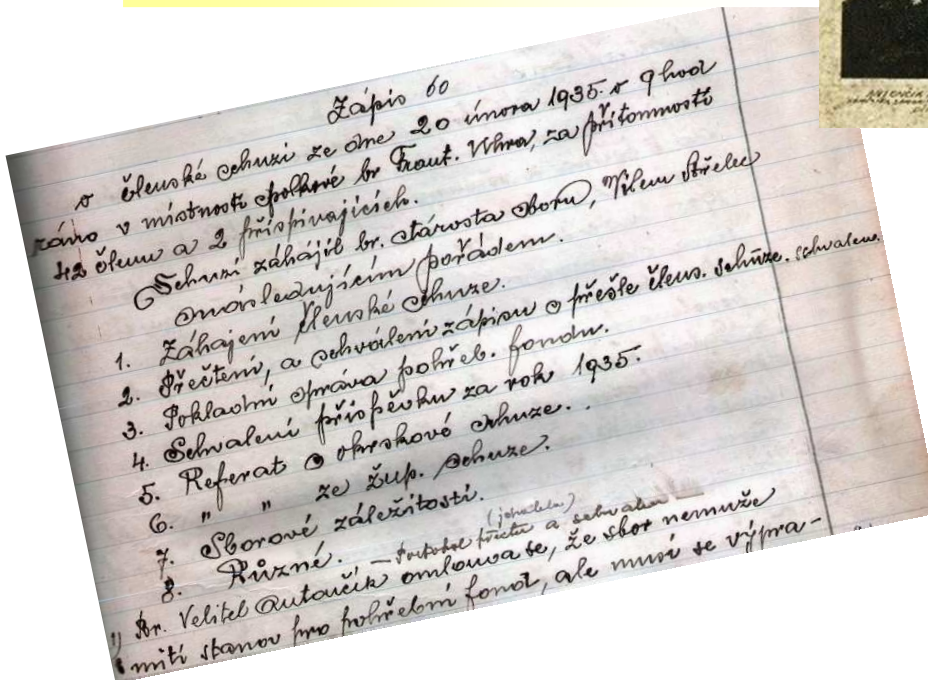 Zápis 60
o členské schuzi ze dne 20 února 1935. o 9 hod
ráno v místnosti spolkové br Frant. Vihra, za přítomnosti
42 členu a 2 přispívajících.
Schuzi zahájil br. stárosta sboru, Vilem Střelec
snásledujícím pořádem.
1. Záhajení členské schuze.
2. Přečtení, a schválení zápisu o přešle člens. schůze. schvalen.
3. Pokladní správa pohřeb. fondu.
4. Schvalení příspěvku za rok 1935.
5. Referat o okrskové schuze.
6. " " ze žup. schuze.
7. Sborové záležitostí.
8. Různé. — Protokol přečtu a schvalen
br. Velitel Antončík omlouva se, že sbor nemuže
míti stanov pro pohřební fond, ale musí se výpra-
ANTONČÍK